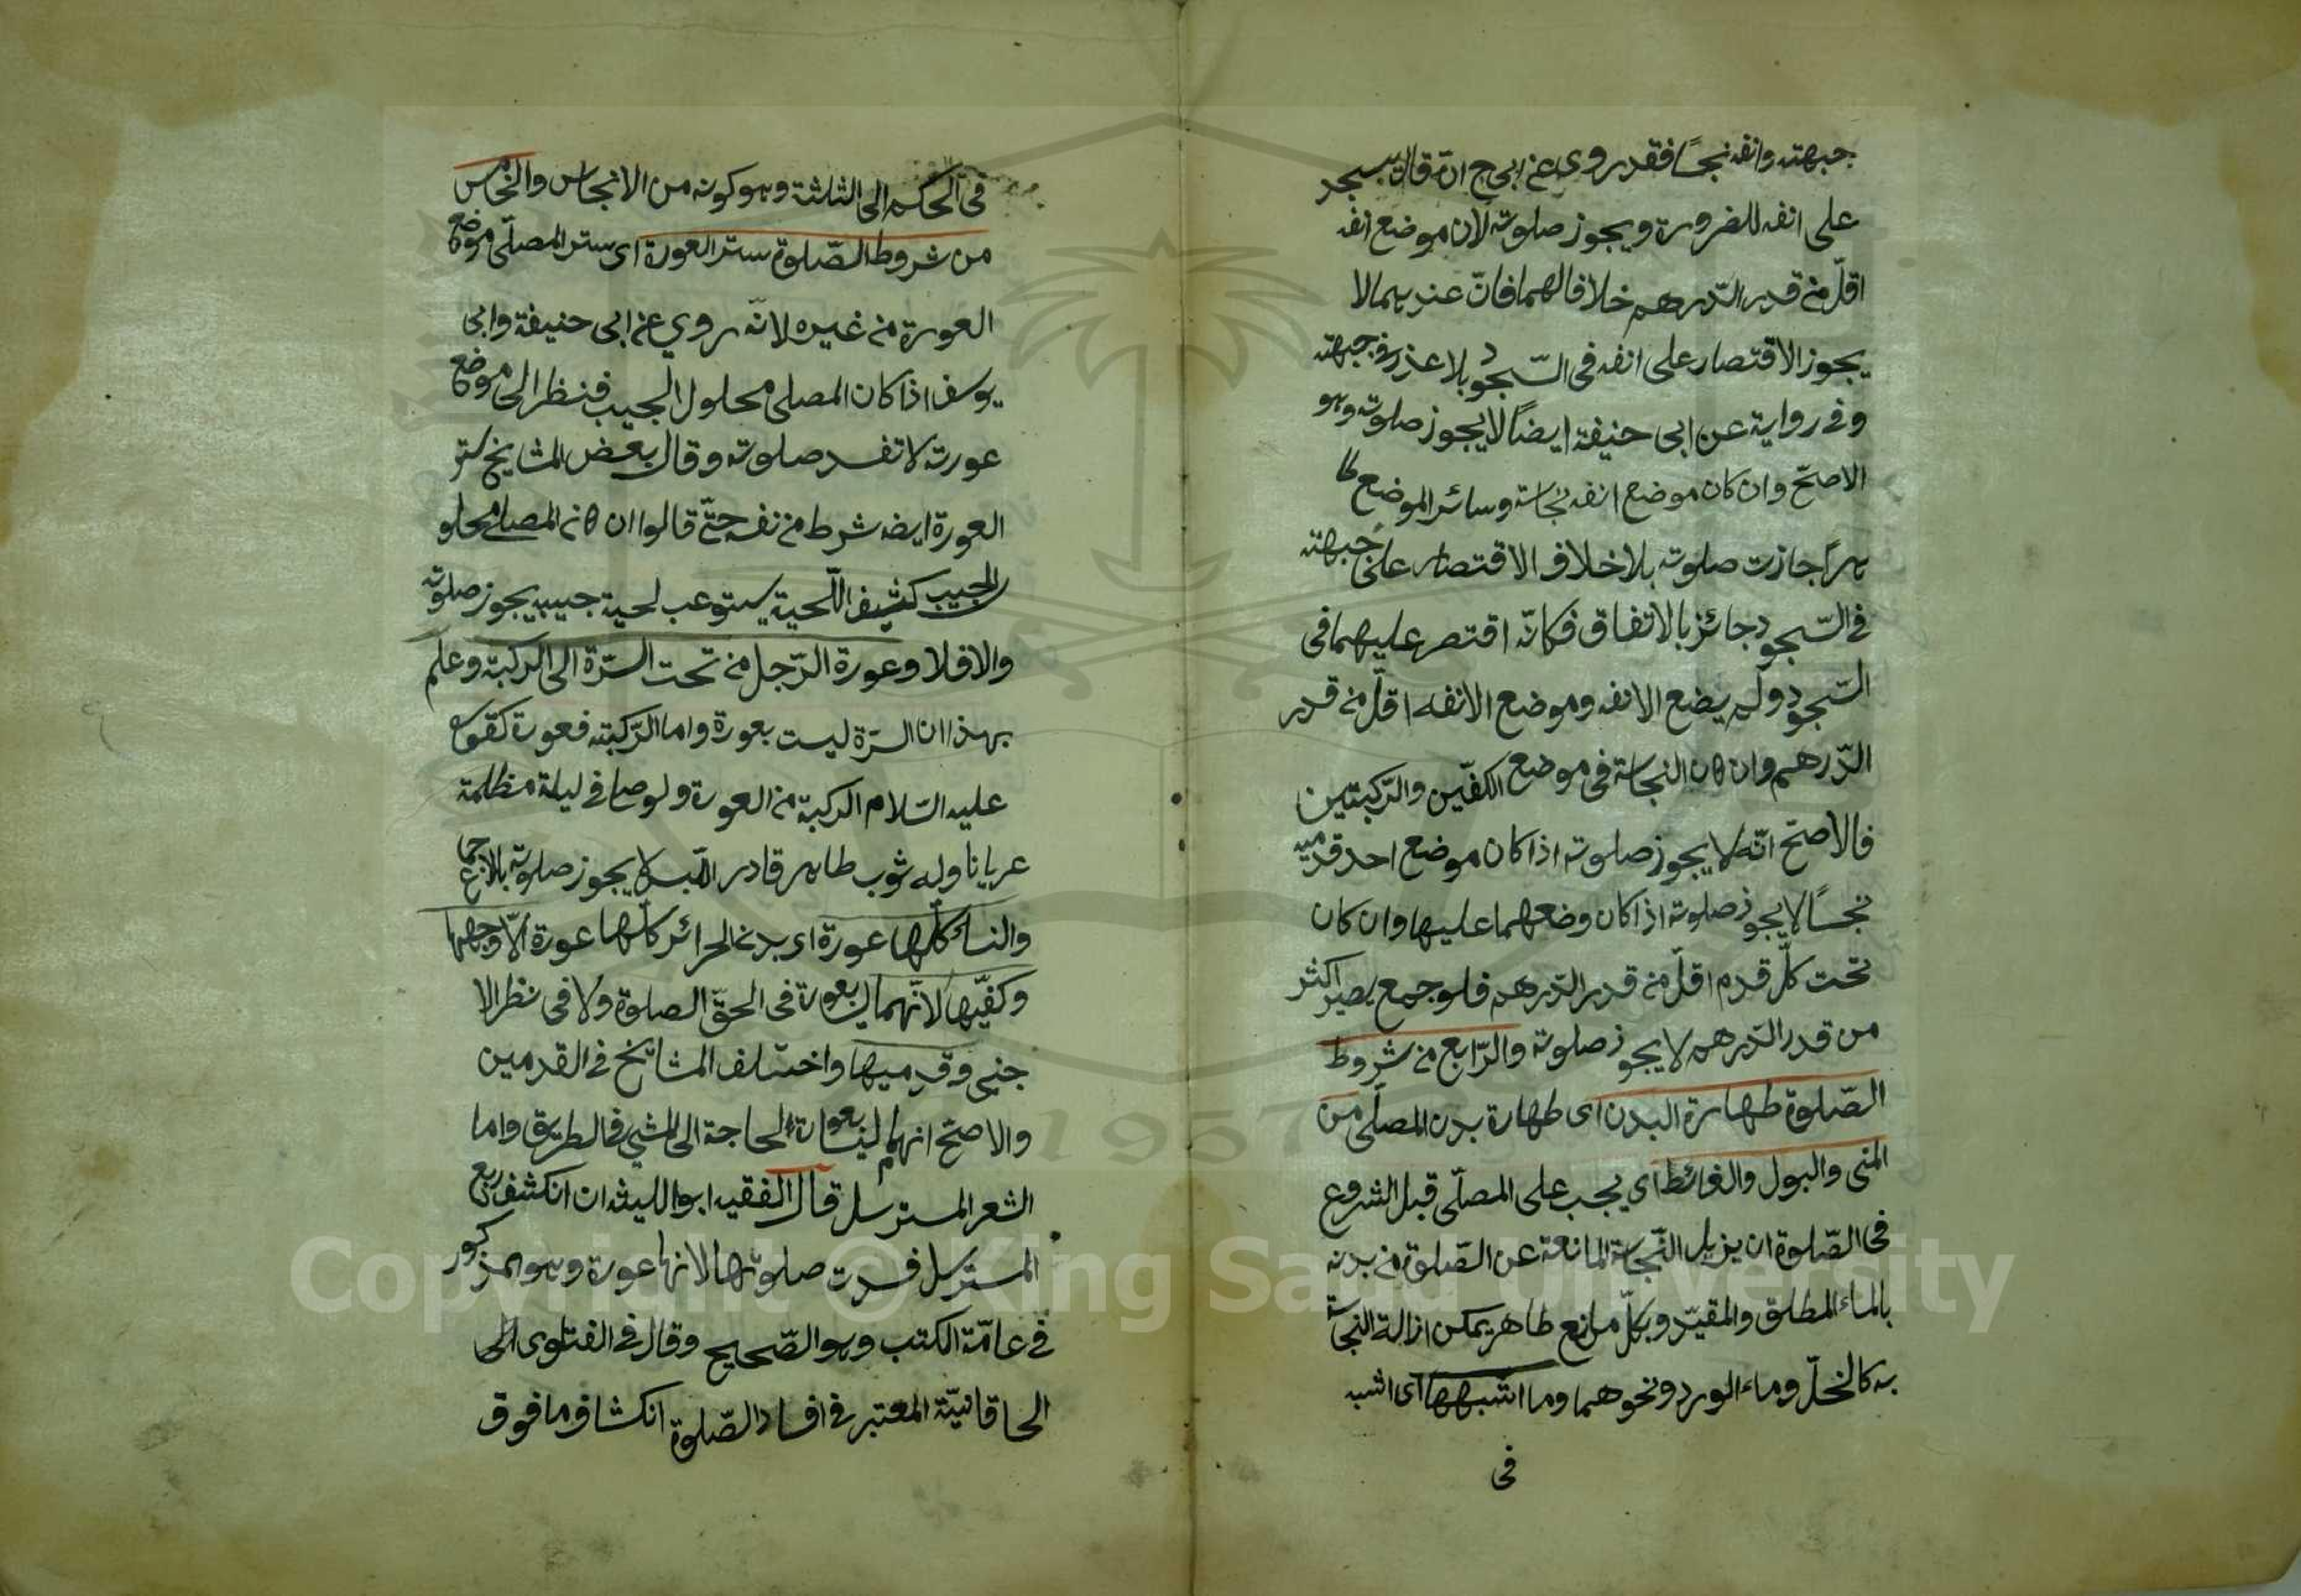 جبهته وانفه نجسًا فقد روى عن ابى ح انه قال يسجد
على انفه للضرورة ويجوز صلوته لان موضع انفه
اقلّ من قدر الدّرهم خلافا لهما فانّ عندهما لا
يجوز الاقتصار على انفه فى السّجود بلا عذر فى جبهته
وفى رواية عن ابى حنيفة ايضًا لا يجوز صلوته وهو
الاصحّ وان كان موضع انفه نجاسة وسائر الموضع طا
هرًا جازت صلوته بلا خلاف الاقتصار على جبهته
فى السّجود جائز بالاتفاق فكانّه اقتصر عليهما فى
السّجود ولم يضع الانف وموضع الانف اقلّ من قدر
الدّرهم وان كان النجاسة فى موضع الكفّين والرّكبتين
فالاصحّ انّه لا يجوز صلوته اذا كان موضع احد قدميه
نجسًا لا يجوز صلوته اذا كان وضعهما عليها وان كان
تحت كلّ قدم اقلّ من قدر الدّرهم فلو جمع يصير اكثر
من قدر الدّرهم لا يجوز صلوته والرّابع من شروط
الصّلوة طهارة البدن اى طهارة بدن المصلّى من
المنى والبول والغائط اى يجب على المصلّى قبل الشروع
فى الصّلوة ان يزيل النّجاسة المانعة عن الصّلوة من بدنه
بالماء المطلق والمقيّد وبكلّ مايع طاهر يمكن ازالة النجاسة
به كالخلّ وماء الورد ونحوهما وما اشبهها اى اشبه
فى
فى الحكم الى الثلثة وهو كونه من الانجاس والخامس
من شروط الصّلوة ستر العورة اى ستر المصلّى موضع
العورة من غيره لانّه روي عن ابى حنيفة وابى
يوسف اذا كان المصلى محلول الجيب فنظر الى موضع
عورته لا تفسد صلوته وقال بعض المشايخ ستر
العورة ايضه شرط من نفسه حتّى قالوا ان كان المصلى محلو
ل الجيب كثيف اللّحية يستوعب لحية جيبه يجوز صلوته
والا فلا وعورة الرّجل من تحت السّرّة الى الركبة وعلم
بهذا ان السرّة ليست بعورة واما الرّكبة فعورة كقوله
عليه السّلام الركبة من العورة ولو صلى فى ليلة مظلمة
عريانا وله ثوب طاهر قادر اللّبس لا يجوز صلوته بالاجماع
والنساء كلّها عورة اى بدن الحرائر كلّها عورة الّا وجهها
وكفيّها لانّهما ليس بعورة فى الحقّ الصلوة ولا فى نظر الا
جنبى وقدميها واختلف المشايخ فى القدمين
والاصحّ انهما ليستا بعورة الحاجة الى المشي فى الطريق واما
الشعر المسترسل قال الفقيه ابو الليث ان انكشف ربع
المسترسل فسدت صلوتها لانها عورة وهو المذكور
فى عامّة الكتب وهو الصّحيح وقال فى الفتاوى الى
الحاقانيّة المعتبر فى افساد الصّلوة انكشاف ما فوق
Copyright © King Saud University
1957